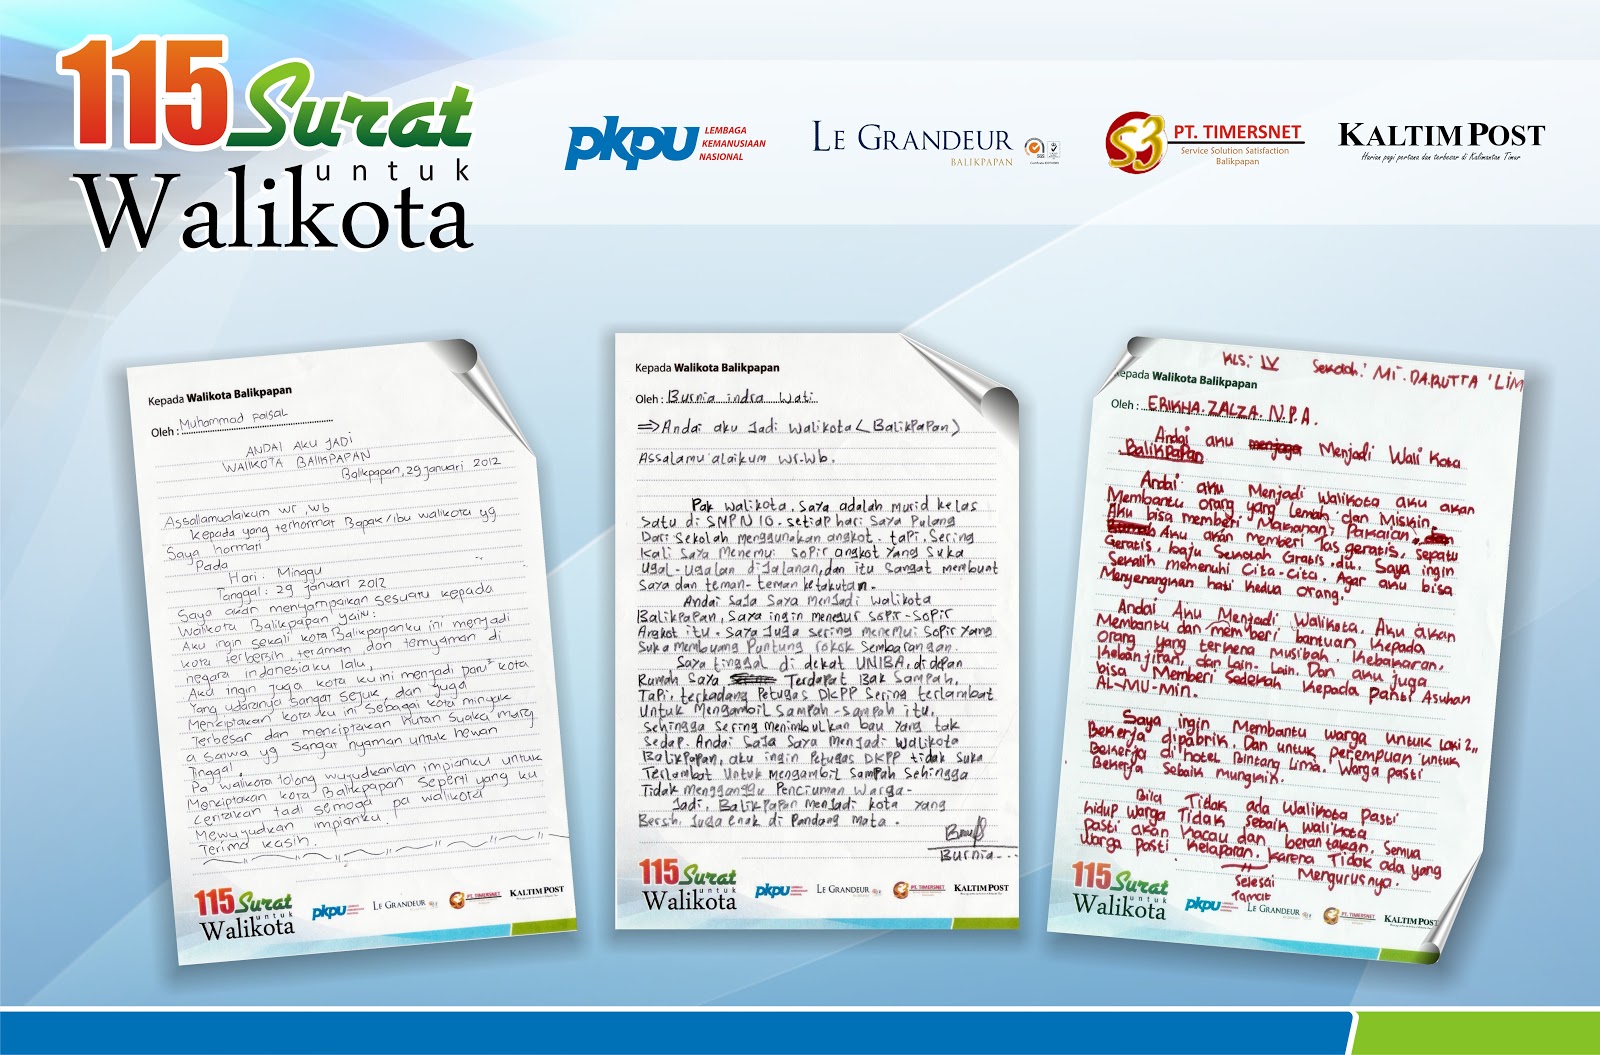 115 Surat
untuk
Walikota
pkpu LEMBAGA
KEMANUSIAAN
NASIONAL
LE GRANDEUR
BALIKPAPAN
S3 PT. TIMERSNET
Service Solution Satisfaction
Balikpapan
KALTIM POST
Harian pagi pertama dan terbesar di Kalimantan Timur
Kepada Walikota Balikpapan
Oleh : Muhammad Faisal
ANDAI AKU JADI
WALIKOTA BALIKPAPAN
Balikpapan, 29 januari 2012
Assallamualaikum wr, wb
Kepada yang terhormat Bapak/ibu walikota yg
Saya hormati
Pada
Hari : Minggu
Tanggal : 29 januari 2012
Saya akan menyampaikan sesuatu kepada
Walikota Balikpapan yaitu:
Aku ingin sekali kota Balikpapanku ini menjadi
kota terbersih teraman dan ternyaman di
negara indonesiaku lalu,
Aku ingin juga kota ku ini menjadi paru² kota
Yang udaranya sangat sejuk, dan juga
Menciptakan kota ku ini sebagai kota minyak
Terbesar dan menciptakan hutan suaka marg
a satwa yg sangat nyaman untuk hewan
Tinggal.
Pa walikota tolong wujudkanlah impianku untuk
Menciptakan kota Balikpapan seperti yang ku
Ceritakan tadi semoga pa walikota
Mewujudkan impianku.
Terima kasih.
115 Surat
untuk
Walikota
pkpu
LE GRANDEUR
PT. TIMERSNET
KALTIM POST
Kepada Walikota Balikpapan
Oleh : Burnia indra Wati
⇒ Andai aku Jadi Walikota (Balikpapan)
Assalamu'alaikum wr.wb.
Pak walikota, Saya adalah murid kelas
Satu di SMPN 10. setiap hari Saya Pulang
Dari Sekolah menggunakan angkot. tapi, Sering
Kali Saya Menemui Sopir angkot Yang Suka
Ugal-Ugalan diJalanan, dan itu Sangat membuat
Saya dan teman-teman ketakutan.
Andai Saja Saya Menjadi Walikota
Balikpapan, Saya ingin menegur Sopir-Sopir
Angkot itu. Saya Juga sering menemui Sopir Yang
Suka membuang Puntung rokok Sembarangan.
Saya tinggal di dekat UNIBA, di depan
Rumah Saya Terdapat Bak Sampah,
Tapi, terkadang Petugas DKPP Sering terlambat
Untuk Mengambil Sampah-Sampah itu,
Sehingga Sering Menimbulkan bau Yang tak
Sedap. Andai Saja Saya Menjadi Walikota
Balikpapan, aku ingin Petugas DKPP tidak Suka
Terlambat Untuk Mengambil Sampah Sehingga
Tidak Mengganggu Penciuman Warga-
Jadi, Balikpapan Menjadi kota Yang
Bersih, Juga enak di Pandang Mata.
Burnia...
115 Surat
untuk
Walikota
pkpu
LE GRANDEUR
PT. TIMERSNET
KALTIM POST
KLS: IV Sekolah: MI. DARUTTA'LIM
Kepada Walikota Balikpapan
Oleh : ERIKHA. ZALZA. N.P.A.
Andai aku Menjadi Wali Kota
Balikpapan
Andai aku Menjadi Walikota aku akan
Membantu orang yang Lemah, dan Miskin.
Aku bisa memberi Makanan, Pakaian,
Aku akan memberi Tas geratis, sepatu
Geratis, baju Sekolah Gratis. Saya ingin
Sekalih memenuhi Cita-Cita. Agar aku bisa
Menyenangkan hati kedua orang.
Andai Aku Menjadi Walikota, Aku akan
Membantu dan memberi bantuan Kepada
Orang yang terkena musibah, Kebakaran,
Kebanjiran, dan Lain-Lain. Dan aku juga
bisa Memberi Sedekah Kepada panti Asuhan
AL-MU-Min.
Saya ingin Membantu warga untuk Laki 2,,
Bekerja dipabrik. Dan untuk perempuan untuk
Bekerja di hotel Bintang Lima. Warga pasti
Bekerja sebaik mungkin.
Bila Tidak ada Walikota Pasti
hidup warga Tidak Sebaik Walikota
Pasti akan Kacau dan berantakan, Semua
Warga pasti Kelaparan, Karena Tidak ada yang
Mengurusnya.
Selesai
Tamat
115 Surat
untuk
Walikota
pkpu
LE GRANDEUR
PT. TIMERSNET
KALTIM POST